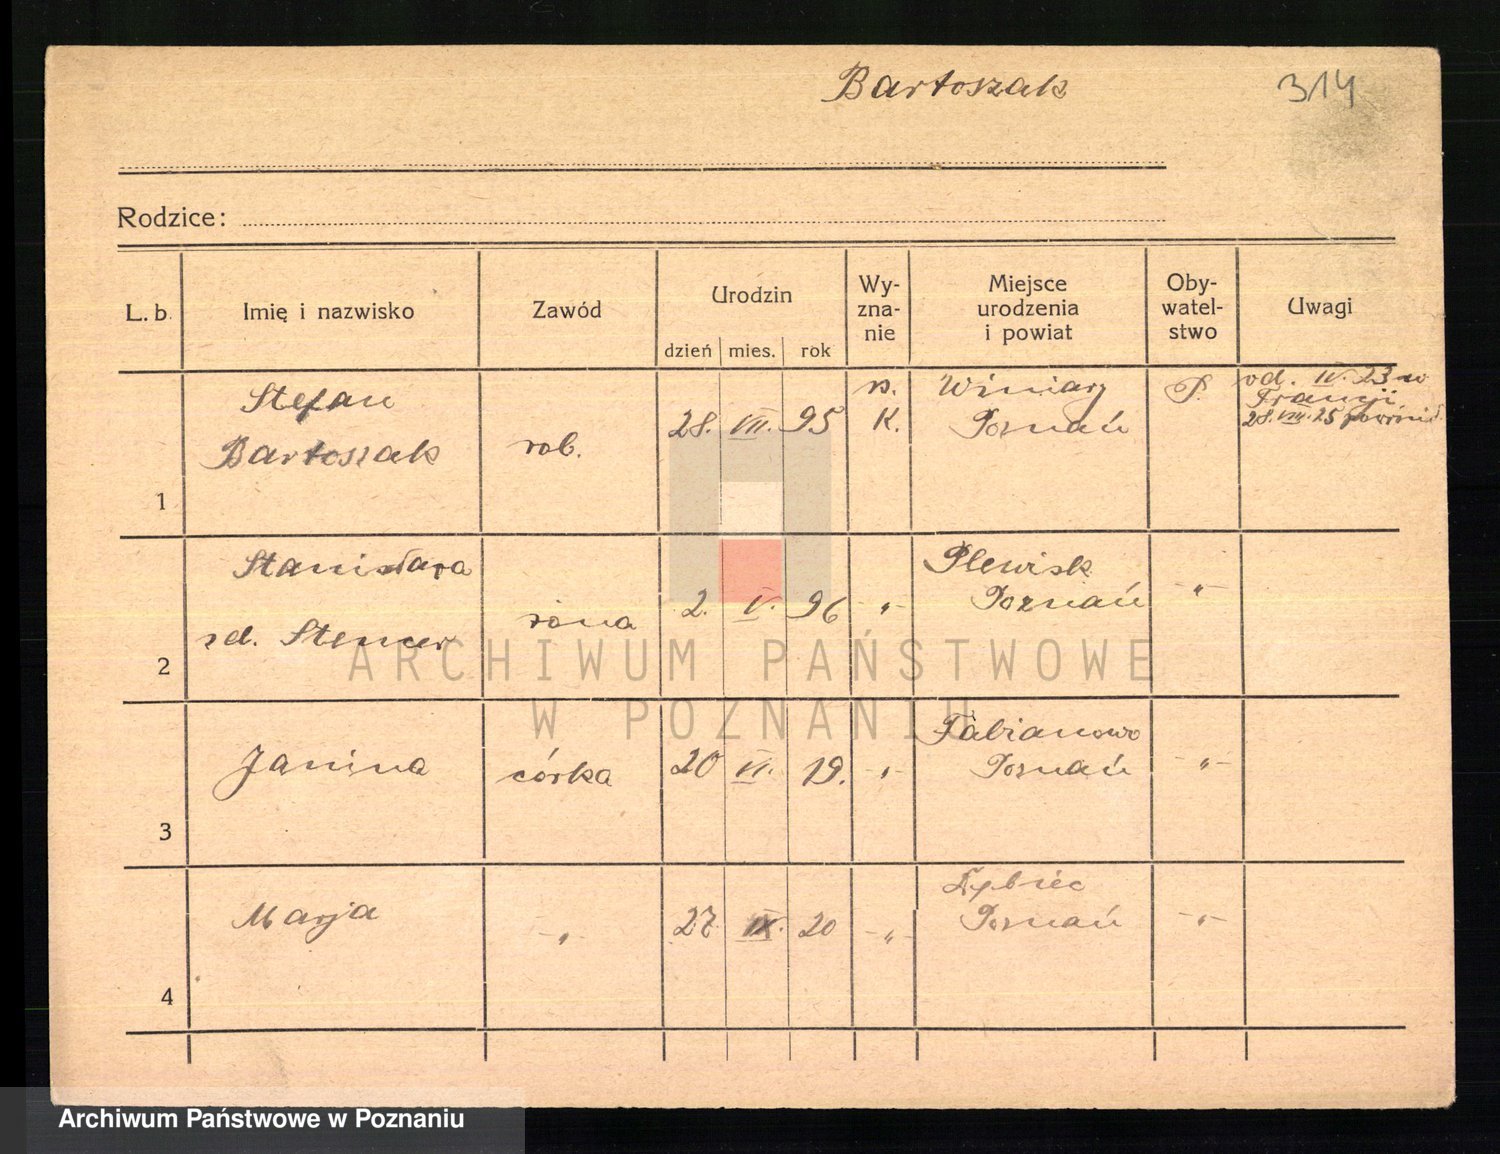 Bartoszak
314
Rodzice:
L. b.
Imię i nazwisko
Zawód
Urodzin
dzień
mies.
rok
Wy-
zna-
nie
Miejsce
urodzenia
i powiat
Oby-
watel-
stwo
Uwagi
1
Stefan
Bartoszak
rob.
28. VII. 95
K.
Winiary
Poznań
P.
od. IV. 23 w
Francji
28. VIII. 25 powrócił
2
Stanisława
zd. Stencer
żona
2. V. 96
-"-
Plewisk
Poznań
-"-
3
Janina
córka
20 VI. 19.
-"-
Fabianowo
Poznań
-"-
4
Marja
-"-
27 IX. 20
-"-
Dębiec
Poznań
-"-
ARCHIWUM PAŃSTWOWE
W POZNANIU
Archiwum Państwowe w Poznaniu